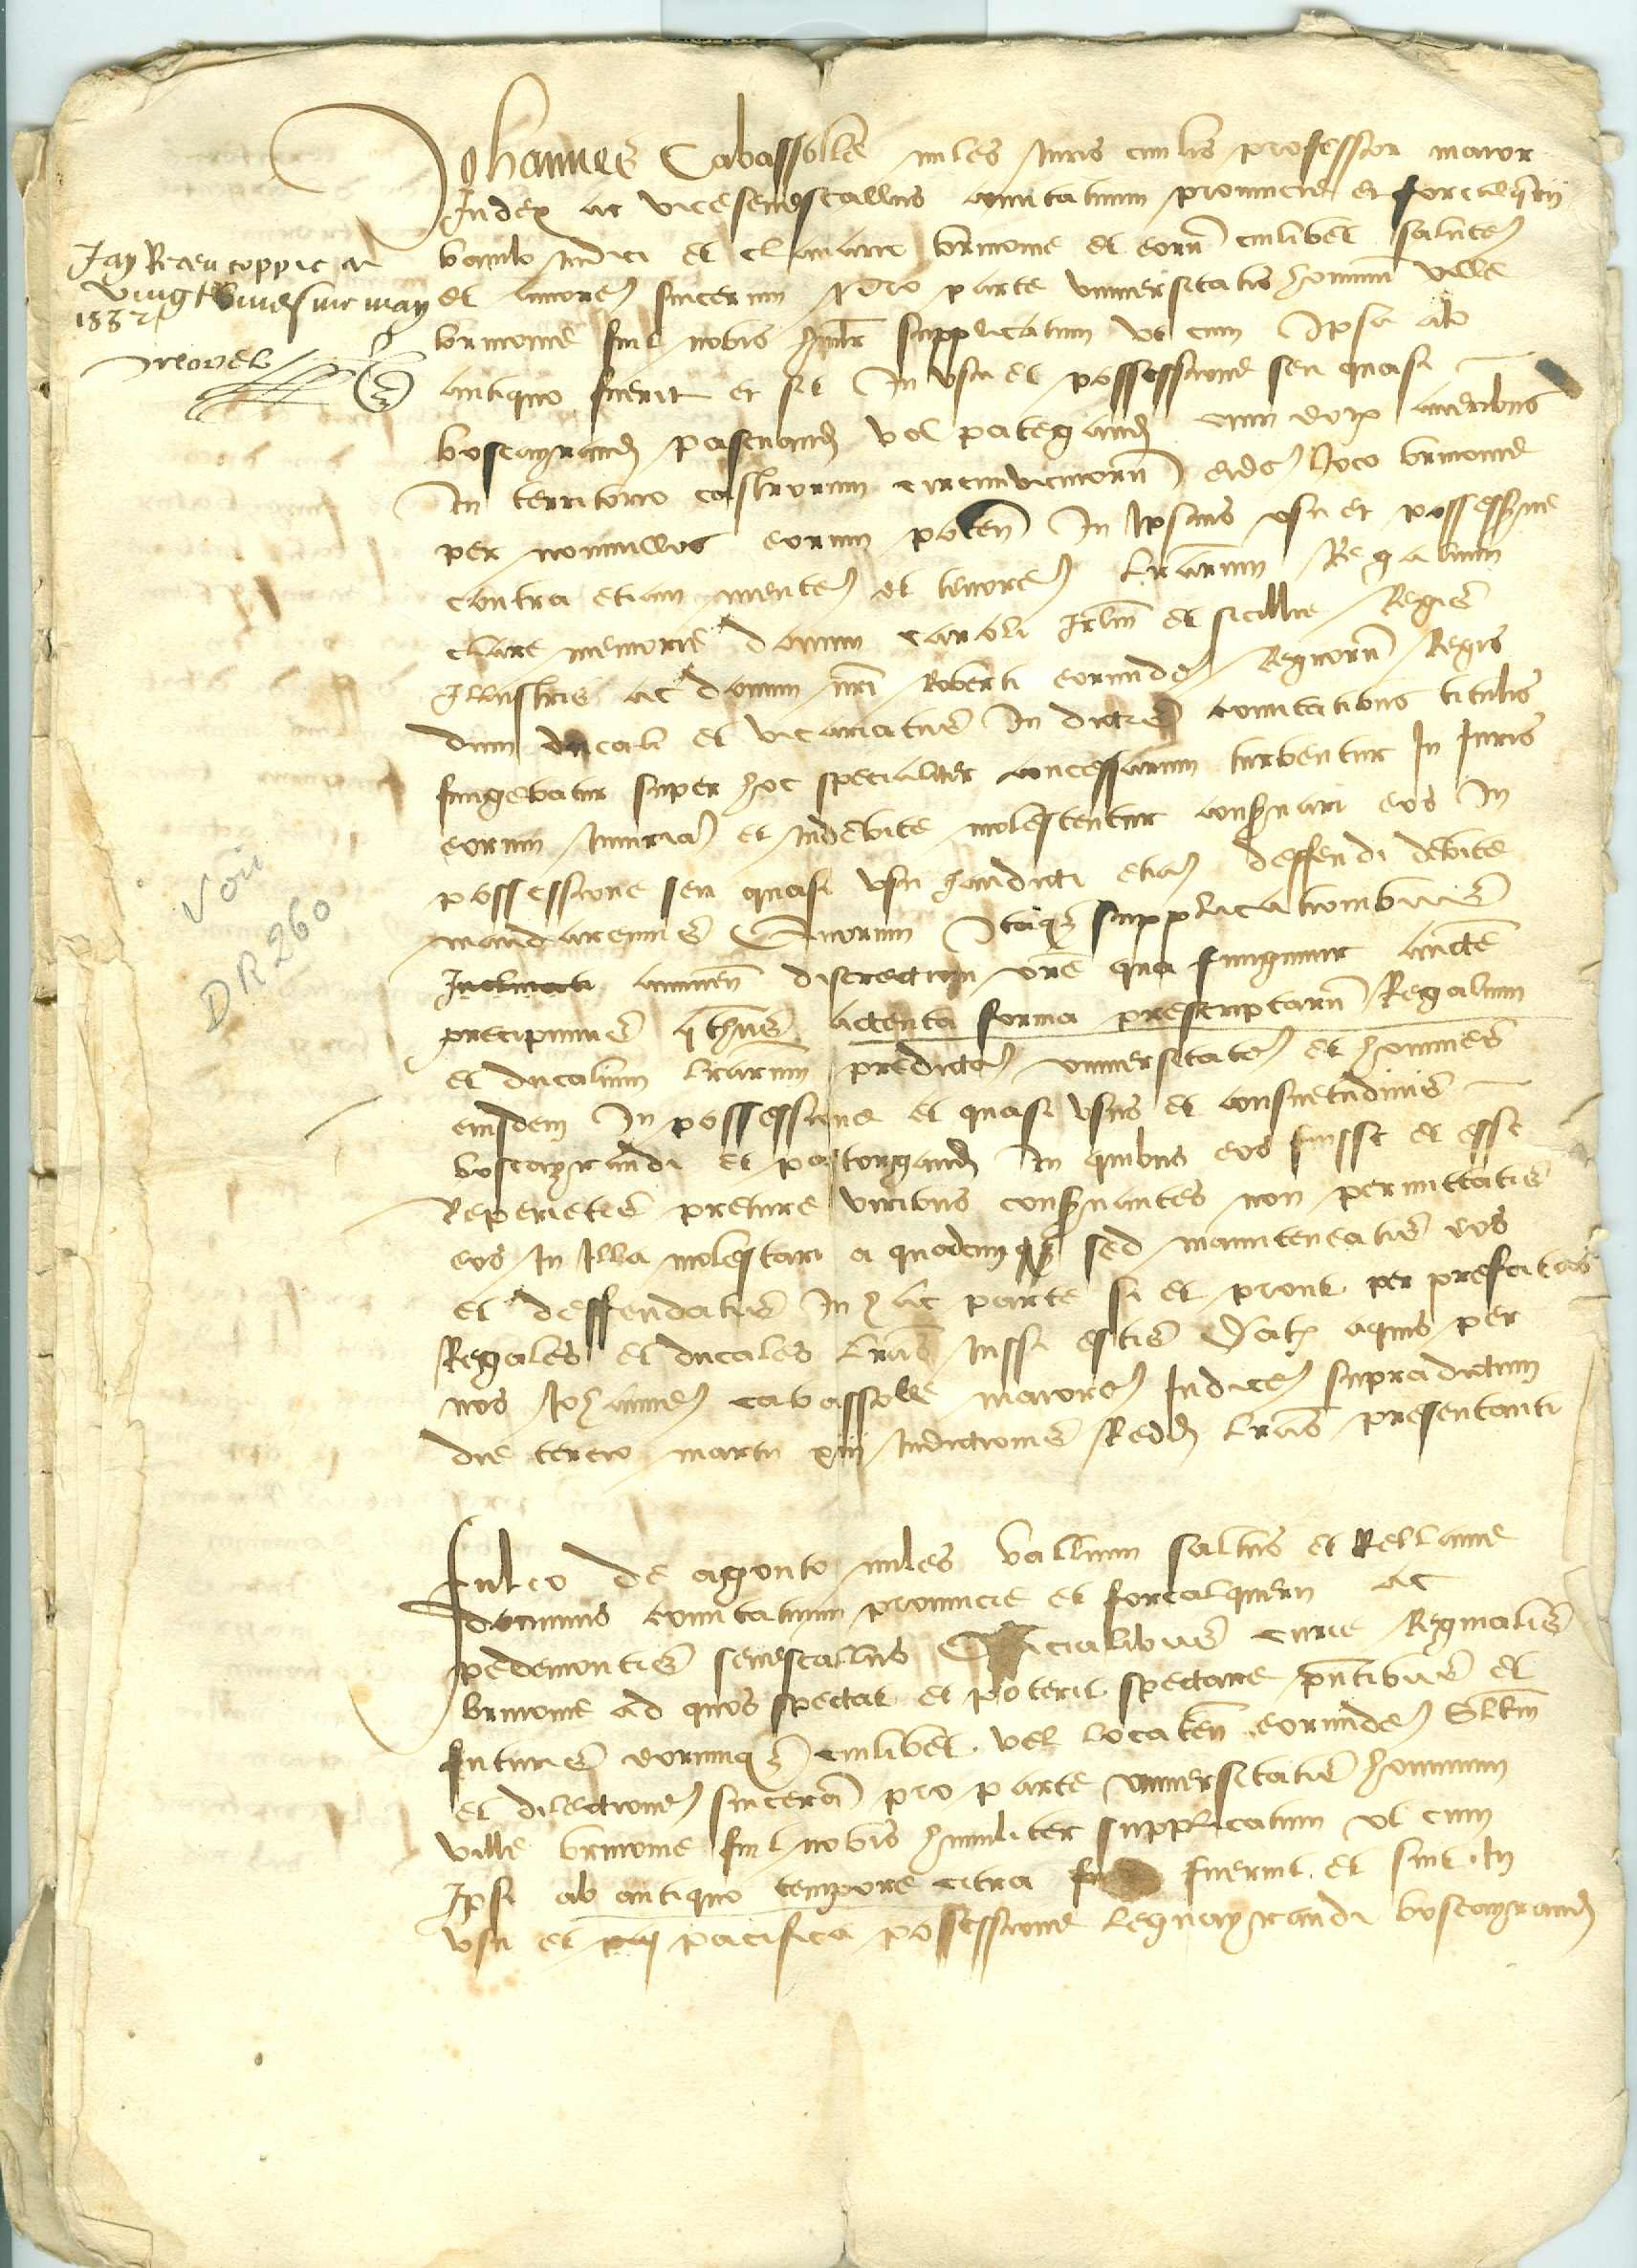 Johannes Cabassolle miles Juris civilis professor maior
Judex ac vicesenescallus comitatuum provincie et forcalquerii
baiulo Judici et clavario brinonie et eorum cuilibet salutem
et amorem sincerum pro parte universitatis hominum ville
brinonie fuit nobis humilr supplicatum ut cum Ipsa ab
antiquo fuerit et sit In usu et possessione seu quasi
boscayrandi pascuandi vel pategandi cum averibus
In territorio castrorum circumvicinorum eidem loco brinonie
per nonnullos eorum In Ipsius usu et possessione
contra etiam mentem et tenorem lrarum Regalium
clare memorie domini caroli Jrlm et sicillie Regis
Illustris ac domini nri Roberti eorumdem Regnorum Regis
dum ducali et vicariatus In dictis comitatibus titulis
fungebatur super hoc specialiter concessarum turbentur In Juris
eorum Iniuriam et Indebite molestentur conservari eos In
possessione seu quasi usu handicti etiam deffendi debite
mandaremus Quorum Itaque supplicationibus
Inclinati discretioni vre qua fungimur aucte
precipimus qthus actenta forma prescriptarum Regalium
et ducalium lrarum predictam universitatem et homines
eiusdem In possessione et quasi usus et consuetudinis
boscayrandi et pastorgandi In quibus eos fuisse et esse
Reperietis preture viribus conservantes non permittatis
eos In Illa molestari a quocumque sed manuteneatis eos
et deffendatis In hac parte si et prout per prefatas
Regales et ducales lras Jussi estis Dat aquis per
nos Johannem cabassolle maiorem Judicem supradictum
die tercio martii xiii Indictionis Redd lras presentanti
Fulco de agouto miles vallium saltus et Rellanie
dominus comitatuum provincie et forcalquerii ac
pedemontis senescallus Officialibus curie Reginalis
brinonie ad quos spectat et poterit spectare pntibus et
futuris eorumque cuilibet vel locaten eorumdem Sltm
et dilectionem sinceram pro parte universitatis hominum
ville brinonie fuit nobis humiliter supplicatum ut cum
Ipsi ab antiquo tempore citra fuerint et sint In
usu et pacifica possessione legnayrandi boscayrandi
Jay Receu coppie ce
vingt may
Voir
DR 260